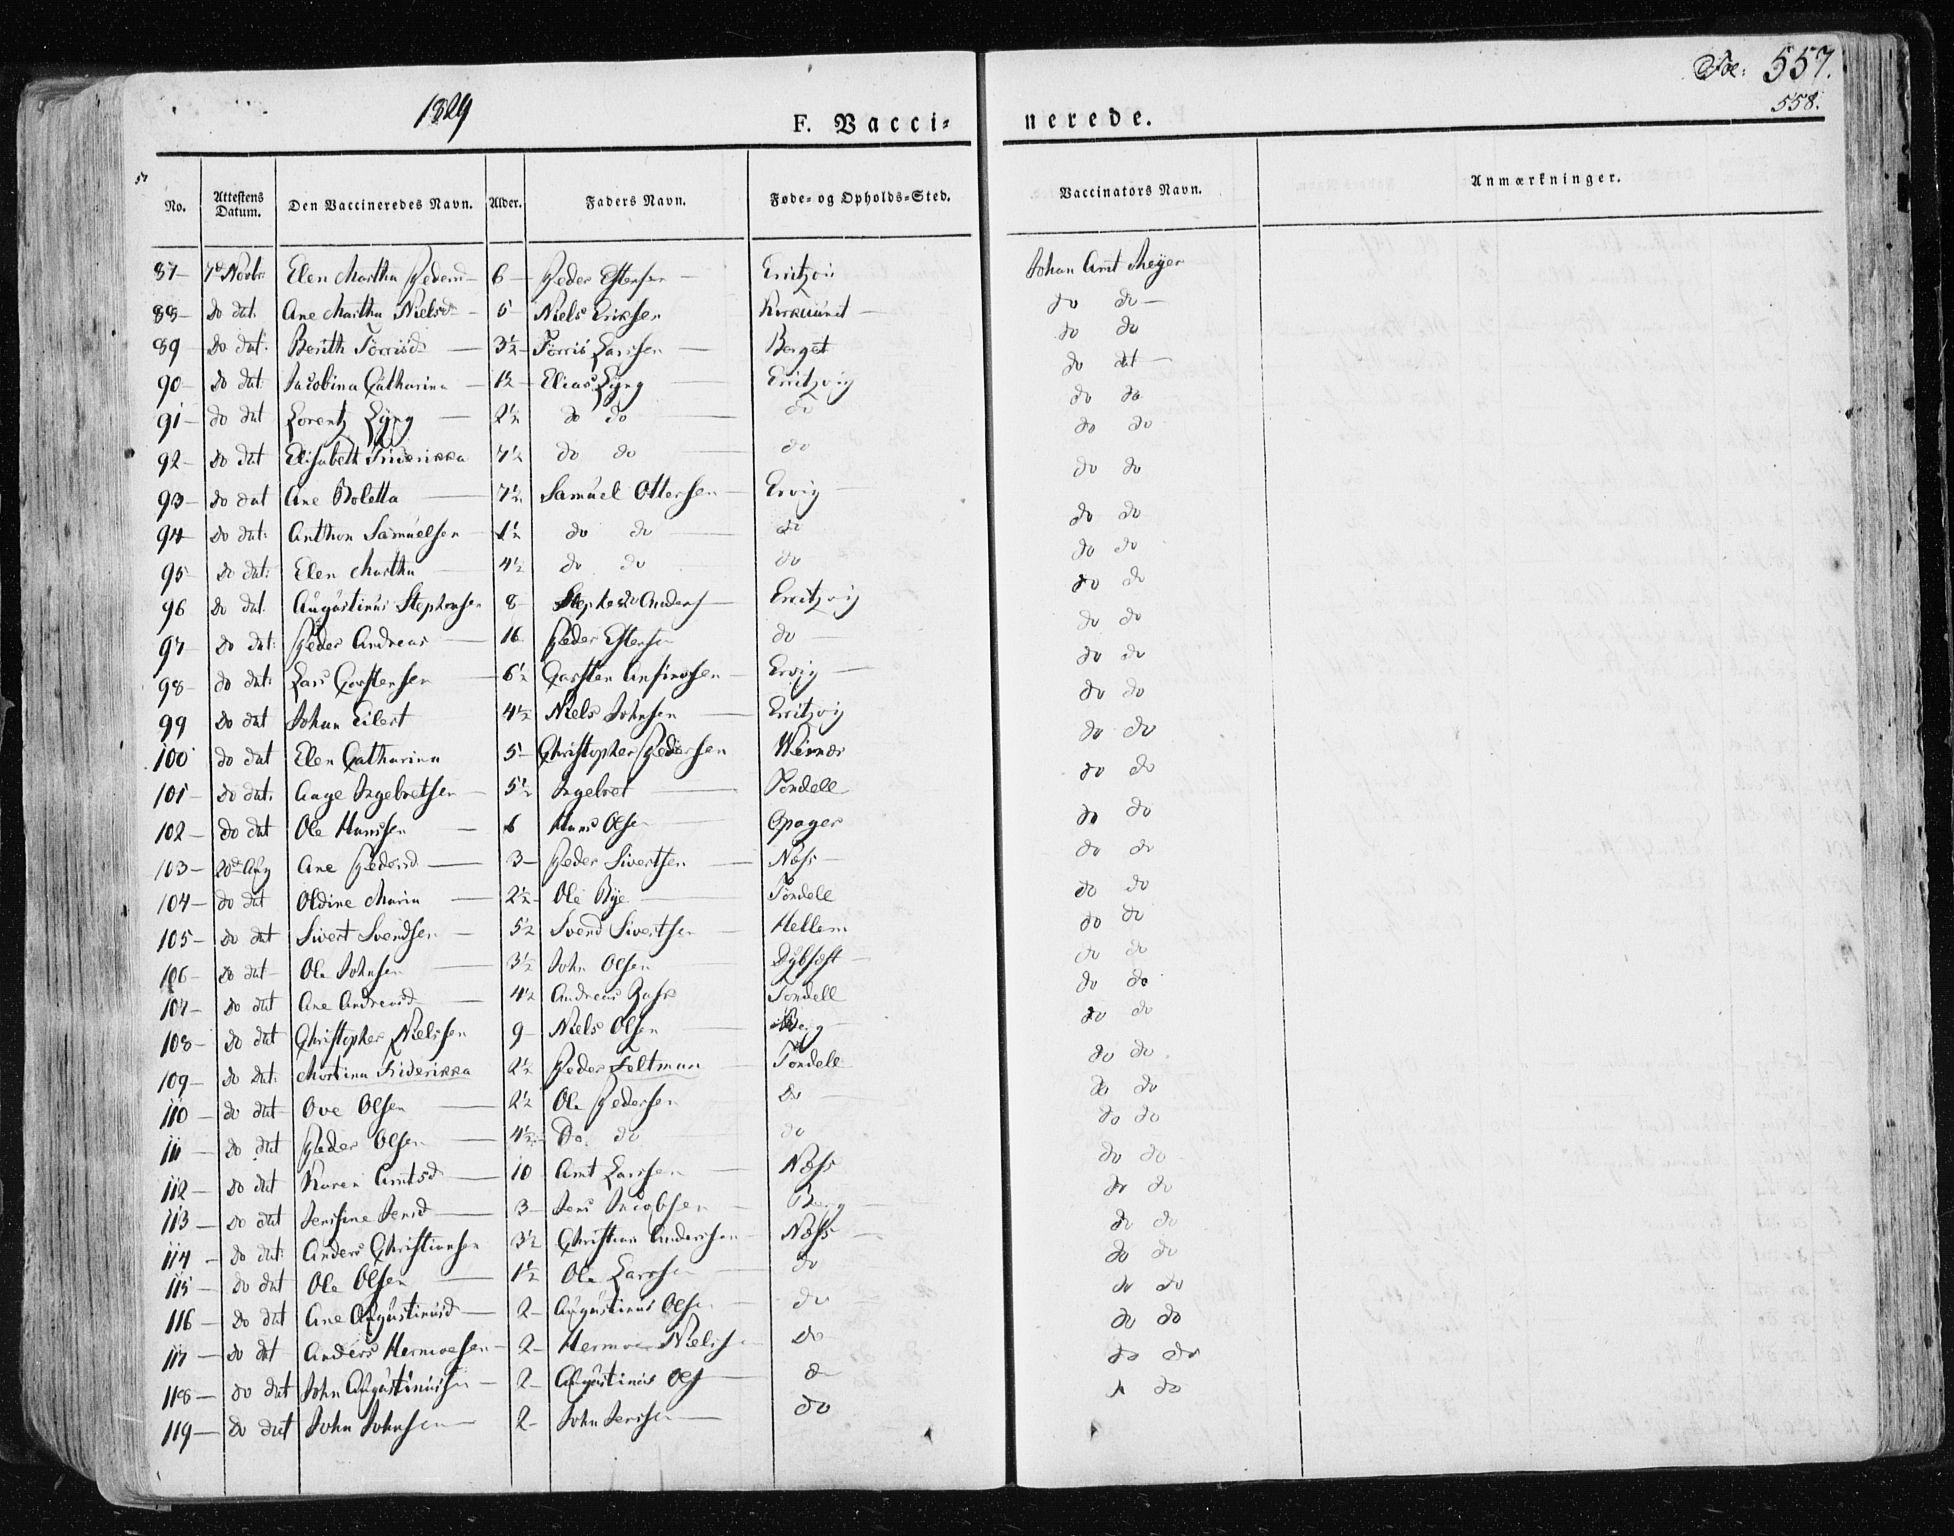 1829
F. Vacci-
nerede.
Foe: 557.
558.
No. Attestens Datum. Den Vaccineredes Navn. Alder. Faders Navn. Føde- og Opholds-Sted. Vaccinators Navn. Anmærkninger.
87 7d Novbr Elen Martha Pedersd 6 Peder Estensen Johan Arnt Meyer
88 do dat: Ane Martha Nielsd 5 Niels Eriksen do do
89 do dat: Berith Törrisd 3½ Törris Larssen Berget do do
90 do dat: Jacobina Catharina 1½ Elias Lyng Erritzvig do dat
91 do dat Lorentz Lyng 2½ do do do do do
92 do dat Elisabeth Friderikka 7½ do do do do do
93 do dat Ane Boletta 7½ Samuel Ottersen Ervig do do
94 do dat: Anthon Samuelsen 1½ do do do do do
95 do dat: Elen Martha 4½ do do do do do
96 do dat. Augustinus Stephensen 8 Erritzvig do do
97 do dat: Peder Andreas 16 Peder Estensen do do do
98 do dat: Lars Carstensen 6½ Carsten Anfinssen Ervig do do
99 do dat Johan Eilert 4½ Niels Johnsen Erritzvig do do
100 do dat Elen Catharina 5 Christopher Pedersen do do
101 do dat. Aage Ingebretsen 5½ Ingebret Tondell do do
102 do dat Ole Hanssen 6 Hans Olsen Opager do do
103 20d Aug Ane Pedersd 3 Peder Sivertsen Næss do do
104 do dat Oldine Maria 2½ Ole Bye Tondell do do
105 do dat Sivert Svendsen 5½ Svend Sivertsen Hellem do do
106 do dat Ole Johnsen 3½ John Olsen do do
107 do dat Ane Andreasd 4½ Andreas Tondell do do
108 do dat Christopher Nielssen 9 Niels Olsen Berg do do
109 do dat: Martina Friderikka 2½ Peder Feltman Tondell do do
110 do dat Ove Olsen 2½ Ole Pedersen do do do
111 do dat Peder Olsen 4½ Do. do do do do
112 do dat Karen Arntsd 10 Arnt Larssen Næss do do
113 do dat Jensine Jensd 3 Jens Jacobsen Berg do do
114 do dat: Anders Christiansen 3½ Christian Anderssen Næss do do
115 do dat Ole Olsen 1½ Ole Larssen do do do
116 do dat Ane Augustinusd 2 Augustinus Olsen do do do
117 do dat Anders Hermoesen 2 Hermoe Nielss do do do
118 do dat John Augustinussen 2 Augustinus Ols do do do
119 do dat John Johnsen 2 John Jenssen do do